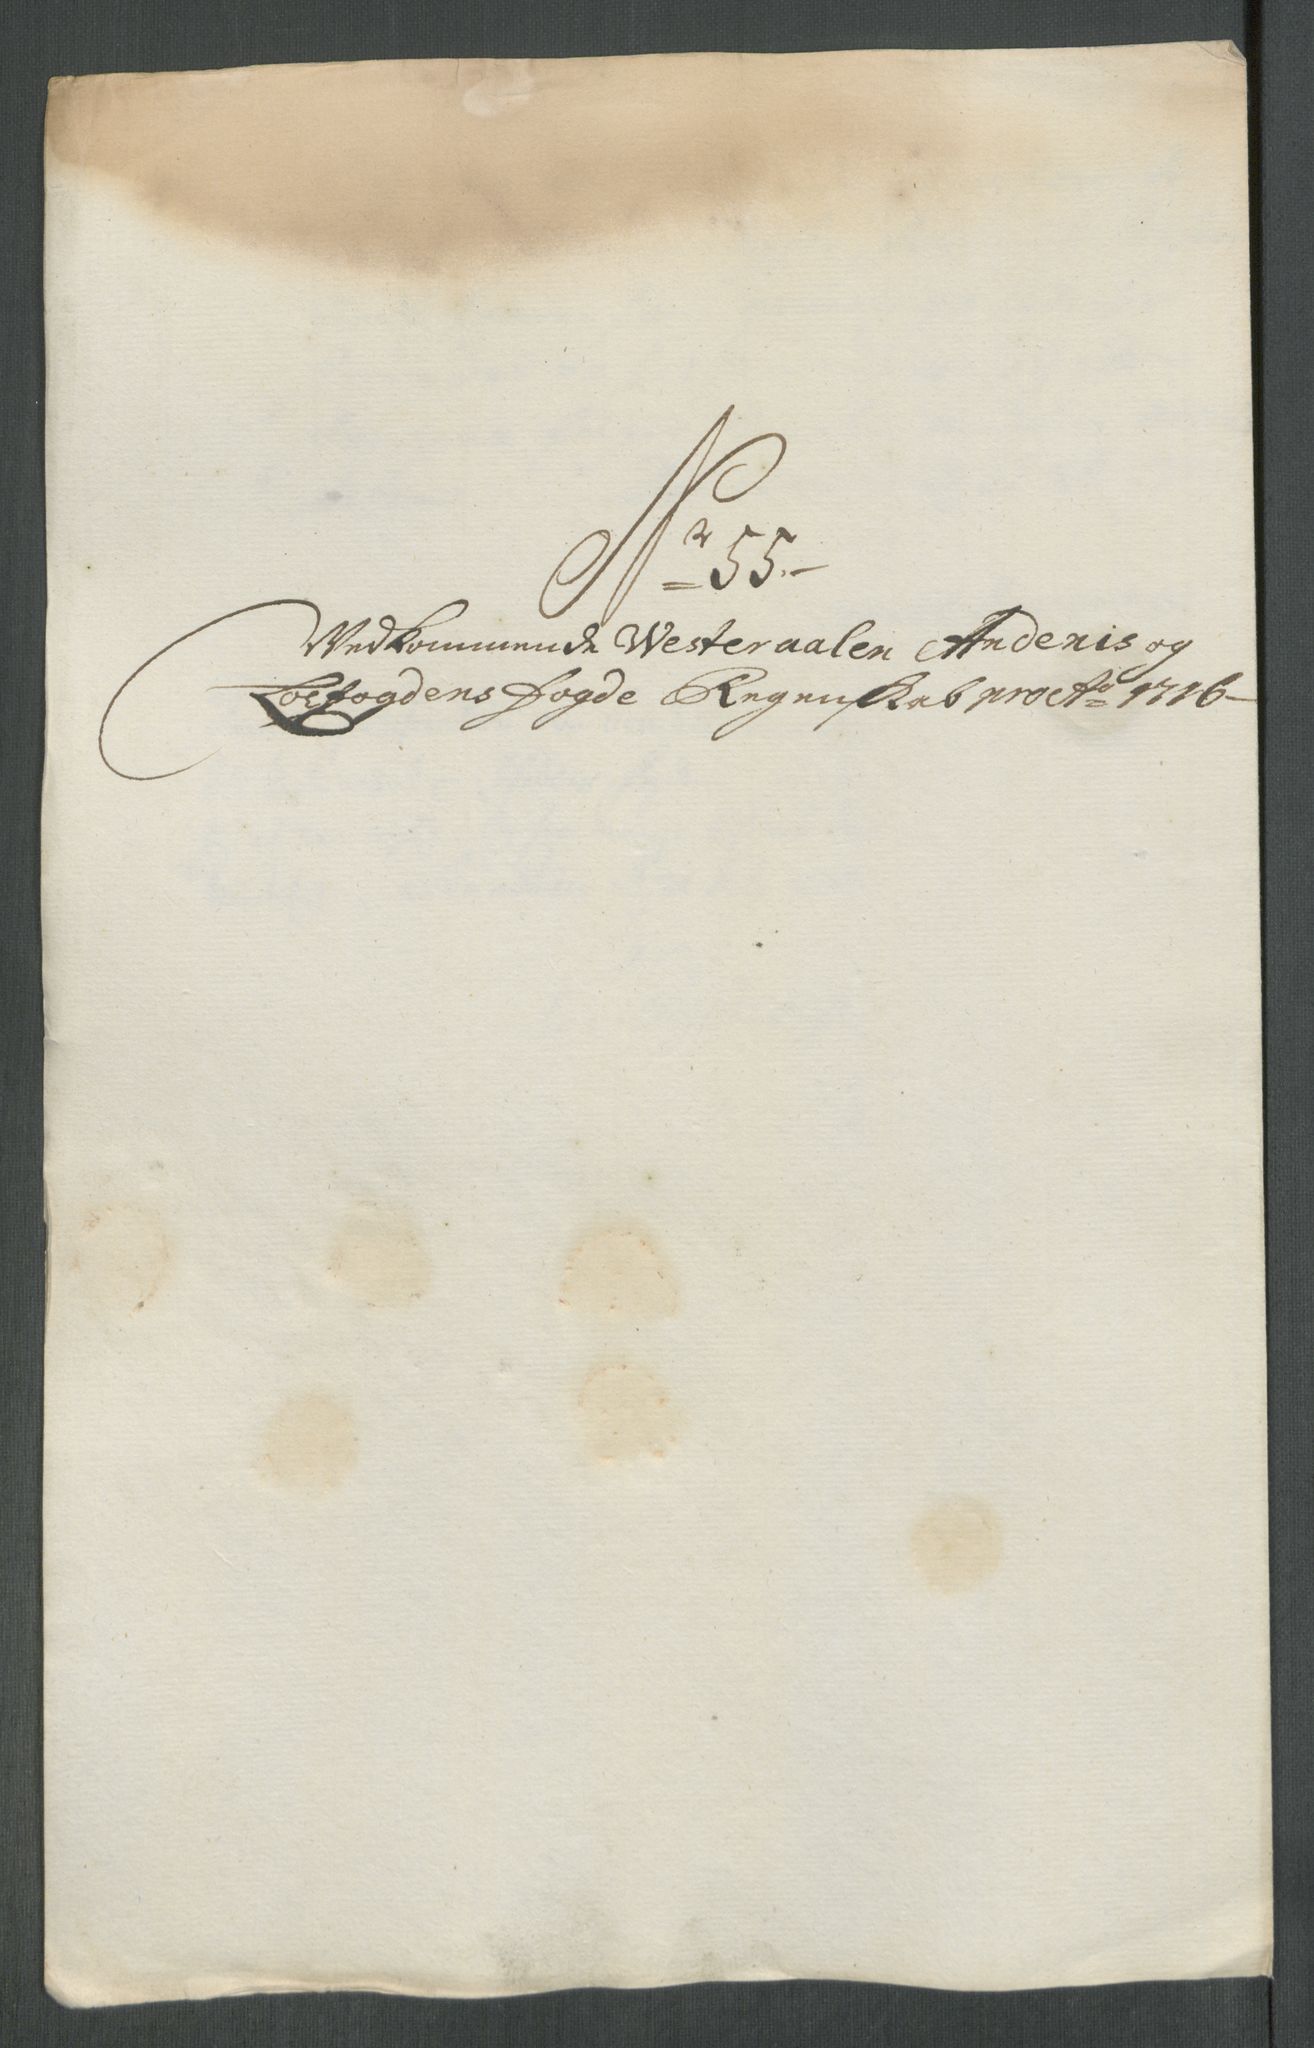 Nr 55.
Vedkommende Westeraalen Andenis og
Lofogdens Fogde Regenskab pro Ao 1716